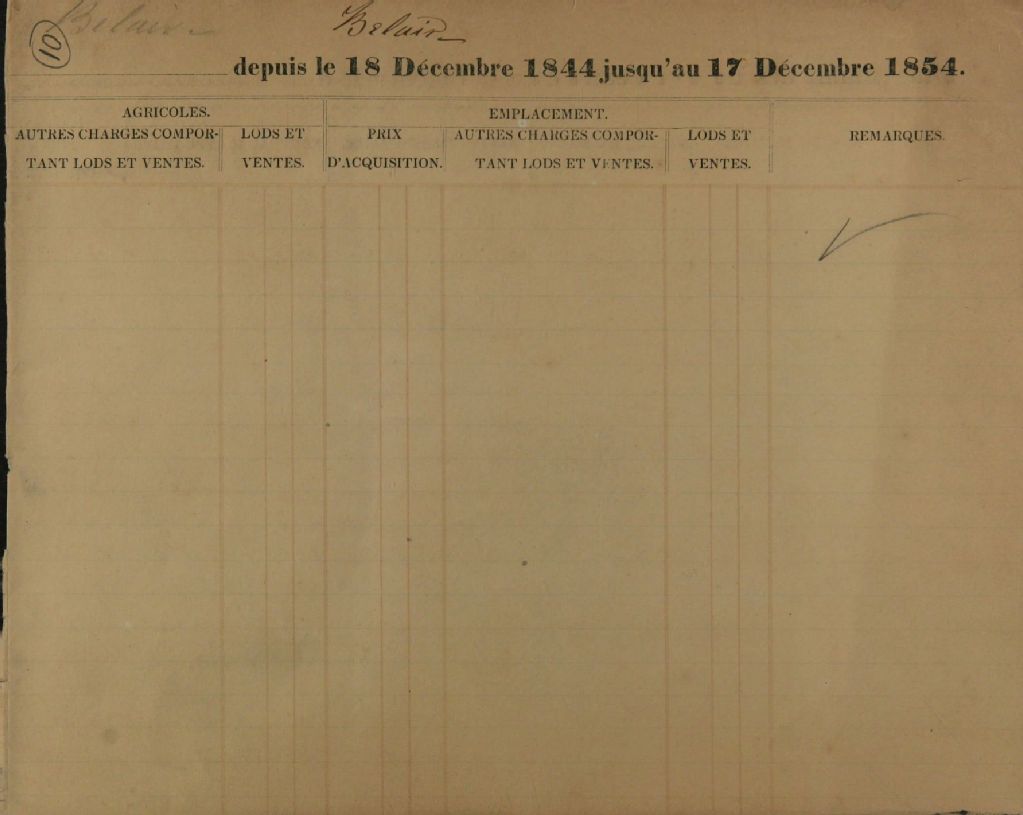 Belair Belair
10
depuis le 18 Décembre 1844 jusqu'au 17 Décembre 1854.
AGRICOLES. EMPLACEMENT.
AUTRES CHARGES COMPOR- LODS ET PRIX AUTRES CHARGES COMPOR- LODS ET REMARQUES.
TANT LODS ET VENTES. VENTES. D'ACQUISITION. TANT LODS ET VENTES. VENTES.